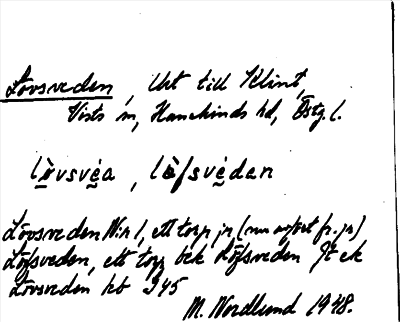 Lövsveden, Urt till Klint,
Vists sn, Hanekinds hd, Östg.l.
lòvsvéa, lòfsvéden
Lövsveden No 1, ett torp jr (nu avsöst fr. jr)
Löfsveden, ett torp bek Löfsveden Jt ek
Lövsveden hb 345
M. Nordlund 1948.